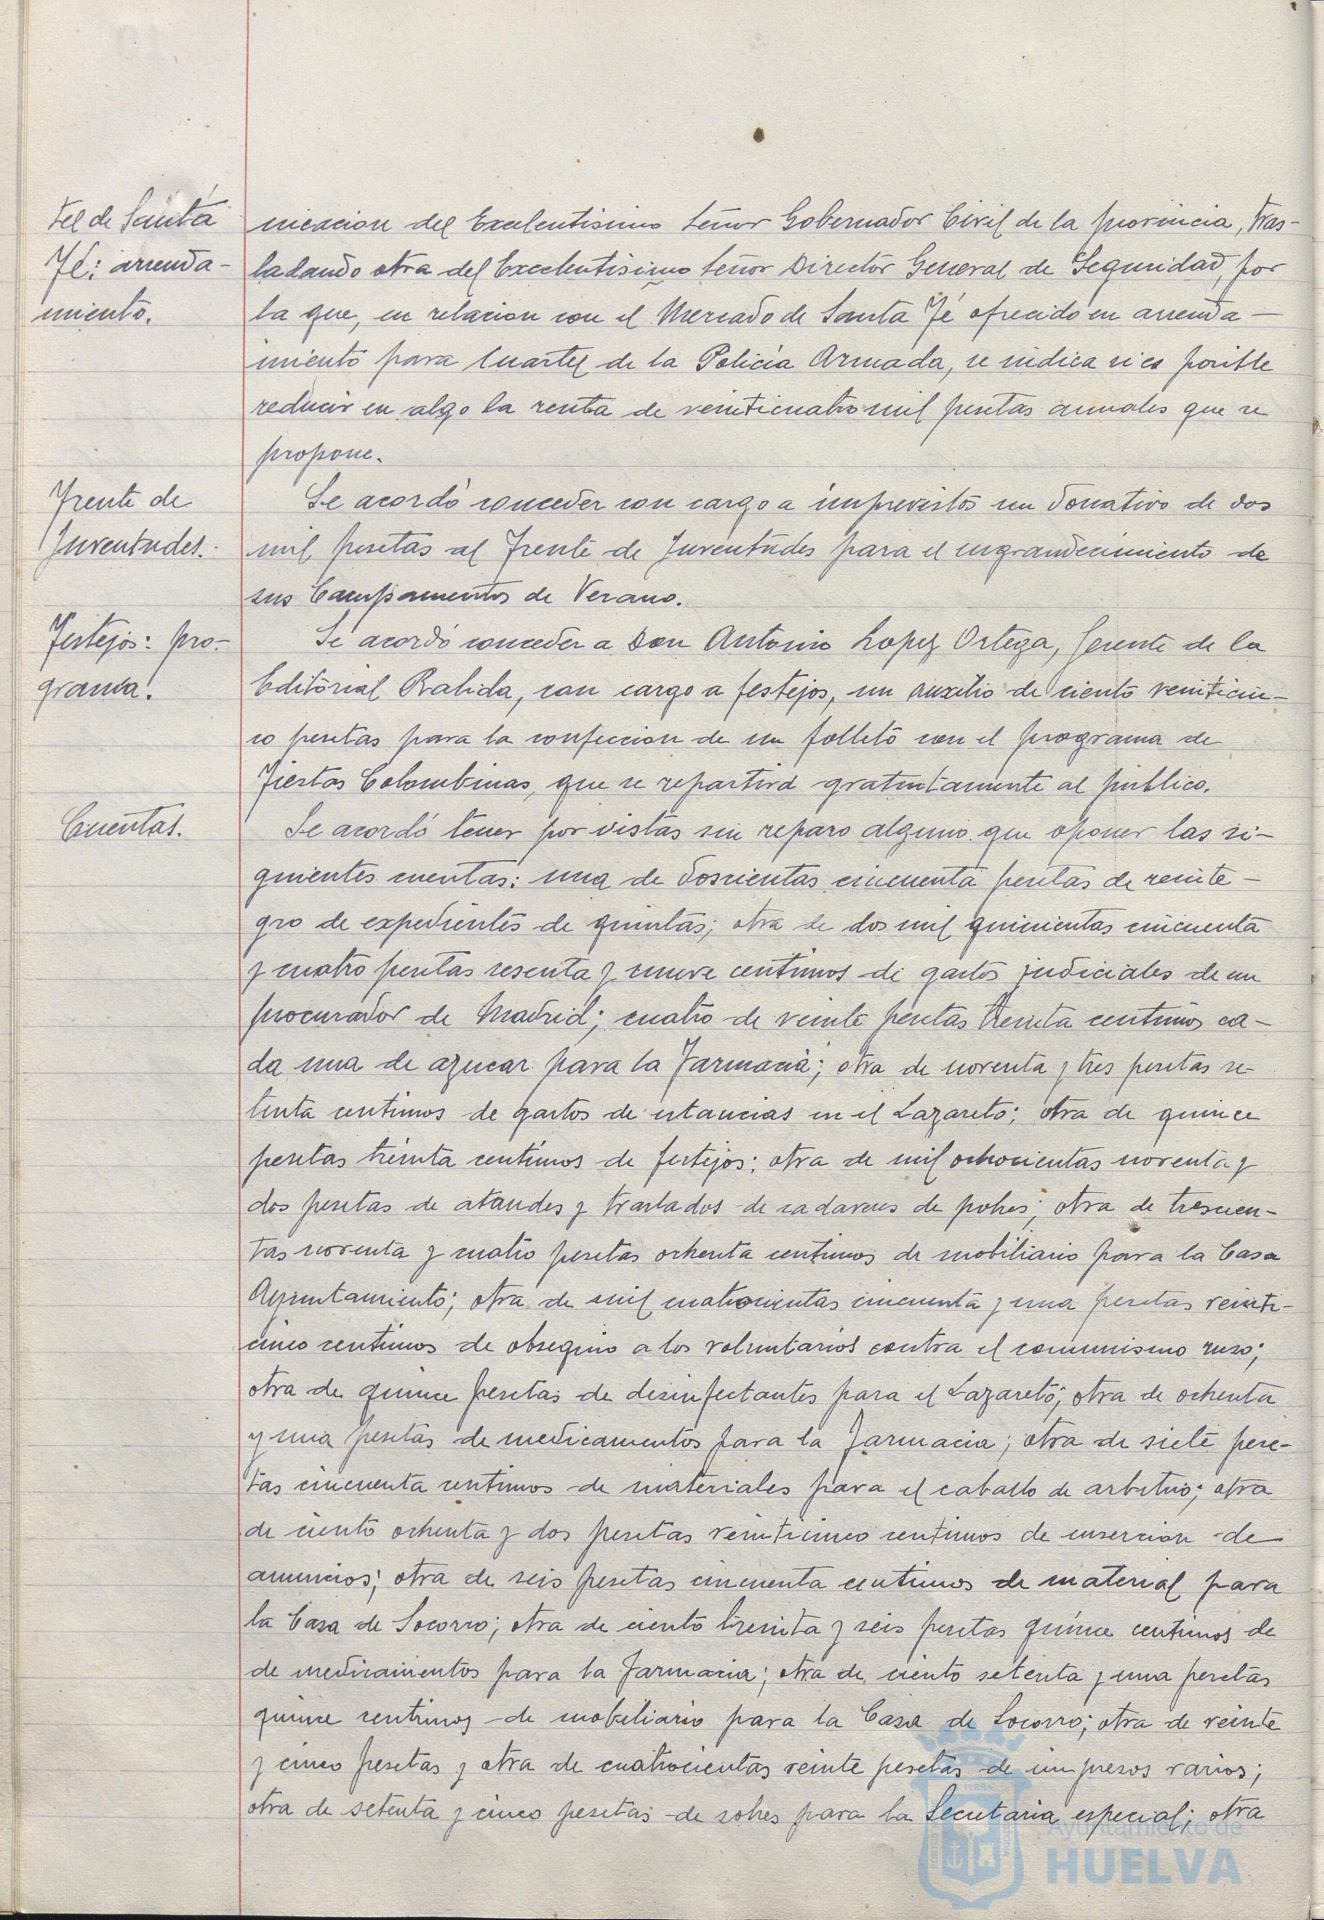 tel de Santa
Fé: arrenda-
miento.
nicacion del Excelentisimo Señor Gobernador Civil de la provincia, tras-
ladando otra del Excelentisimo Señor Director General de Seguridad, por
la que, en relacion con el Mercado de Santa Fé ofrecido en arrenda-
miento para Cuartel de la Policía Armada, se indica si es posible
reducir en algo la renta de veinticuatro mil pesetas anuales que se
propone.
Frente de
Juventudes.
Se acordó conceder con cargo a imprevistos un donativo de dos
mil pesetas al Frente de Juventudes para el engrandecimiento de
sus Campamentos de Verano.
Festejos: pro-
grama.
Se acordó conceder a Don Antonio Lopez Ortega, Gerente de la
Editorial Rabida, con cargo a festejos, un auxilio de ciento veinticin-
co pesetas para la confeccion de un folleto con el programa de
Fiestas Colombinas, que se repartirá gratuitamente al publico.
Cuentas.
Se acordó tener por vistas sin reparo alguno que oponer las si-
guientes cuentas: una de doscientas cincuenta pesetas de reinte-
gro de expedientes de quintas; otra de dos mil quinientas cincuenta
y cuatro pesetas sesenta y nueve centimos de gastos judiciales de un
procurador de Madrid; cuatro de veinte pesetas treinta centimos ca-
da una de azucar para la Farmacia; otra de noventa y tres pesetas se-
tenta centimos de gastos de estancias en el Lazareto; otra de quince
pesetas treinta centimos de festejos; otra de mil ochocientas noventa y
dos pesetas de ataudes y traslados de cadaveres de pobres; otra de trescien-
tas noventa y cuatro pesetas ochenta centimos de mobiliario para la Casa
Ayuntamiento; otra de mil cuatrocientas cincuenta y una pesetas veinti-
cinco centimos de obsequio a los voluntarios contra el comunismo ruso;
otra de quince pesetas de desinfectantes para el Lazareto; otra de ochenta
y una pesetas de medicamentos para la Farmacia; otra de siete pese-
tas cincuenta centimos de materiales para el caballo de arbitrio; otra
de ciento ochenta y dos pesetas veinticinco centimos de insercion de
anuncios; otra de seis pesetas cincuenta centimos de material para
la Casa de Socorro; otra de ciento treinta y seis pesetas quince centimos de
de medicamentos para la Farmacia; otra de ciento setenta y una pesetas
quince centimos de mobiliario para la Casa de Socorro; otra de veinte
y cinco pesetas y otra de cuatrocientas veinte pesetas de impresos varios;
otra de setenta y cinco pesetas de sobres para la Secretaria especial; otra
Ayuntamiento de
HUELVA